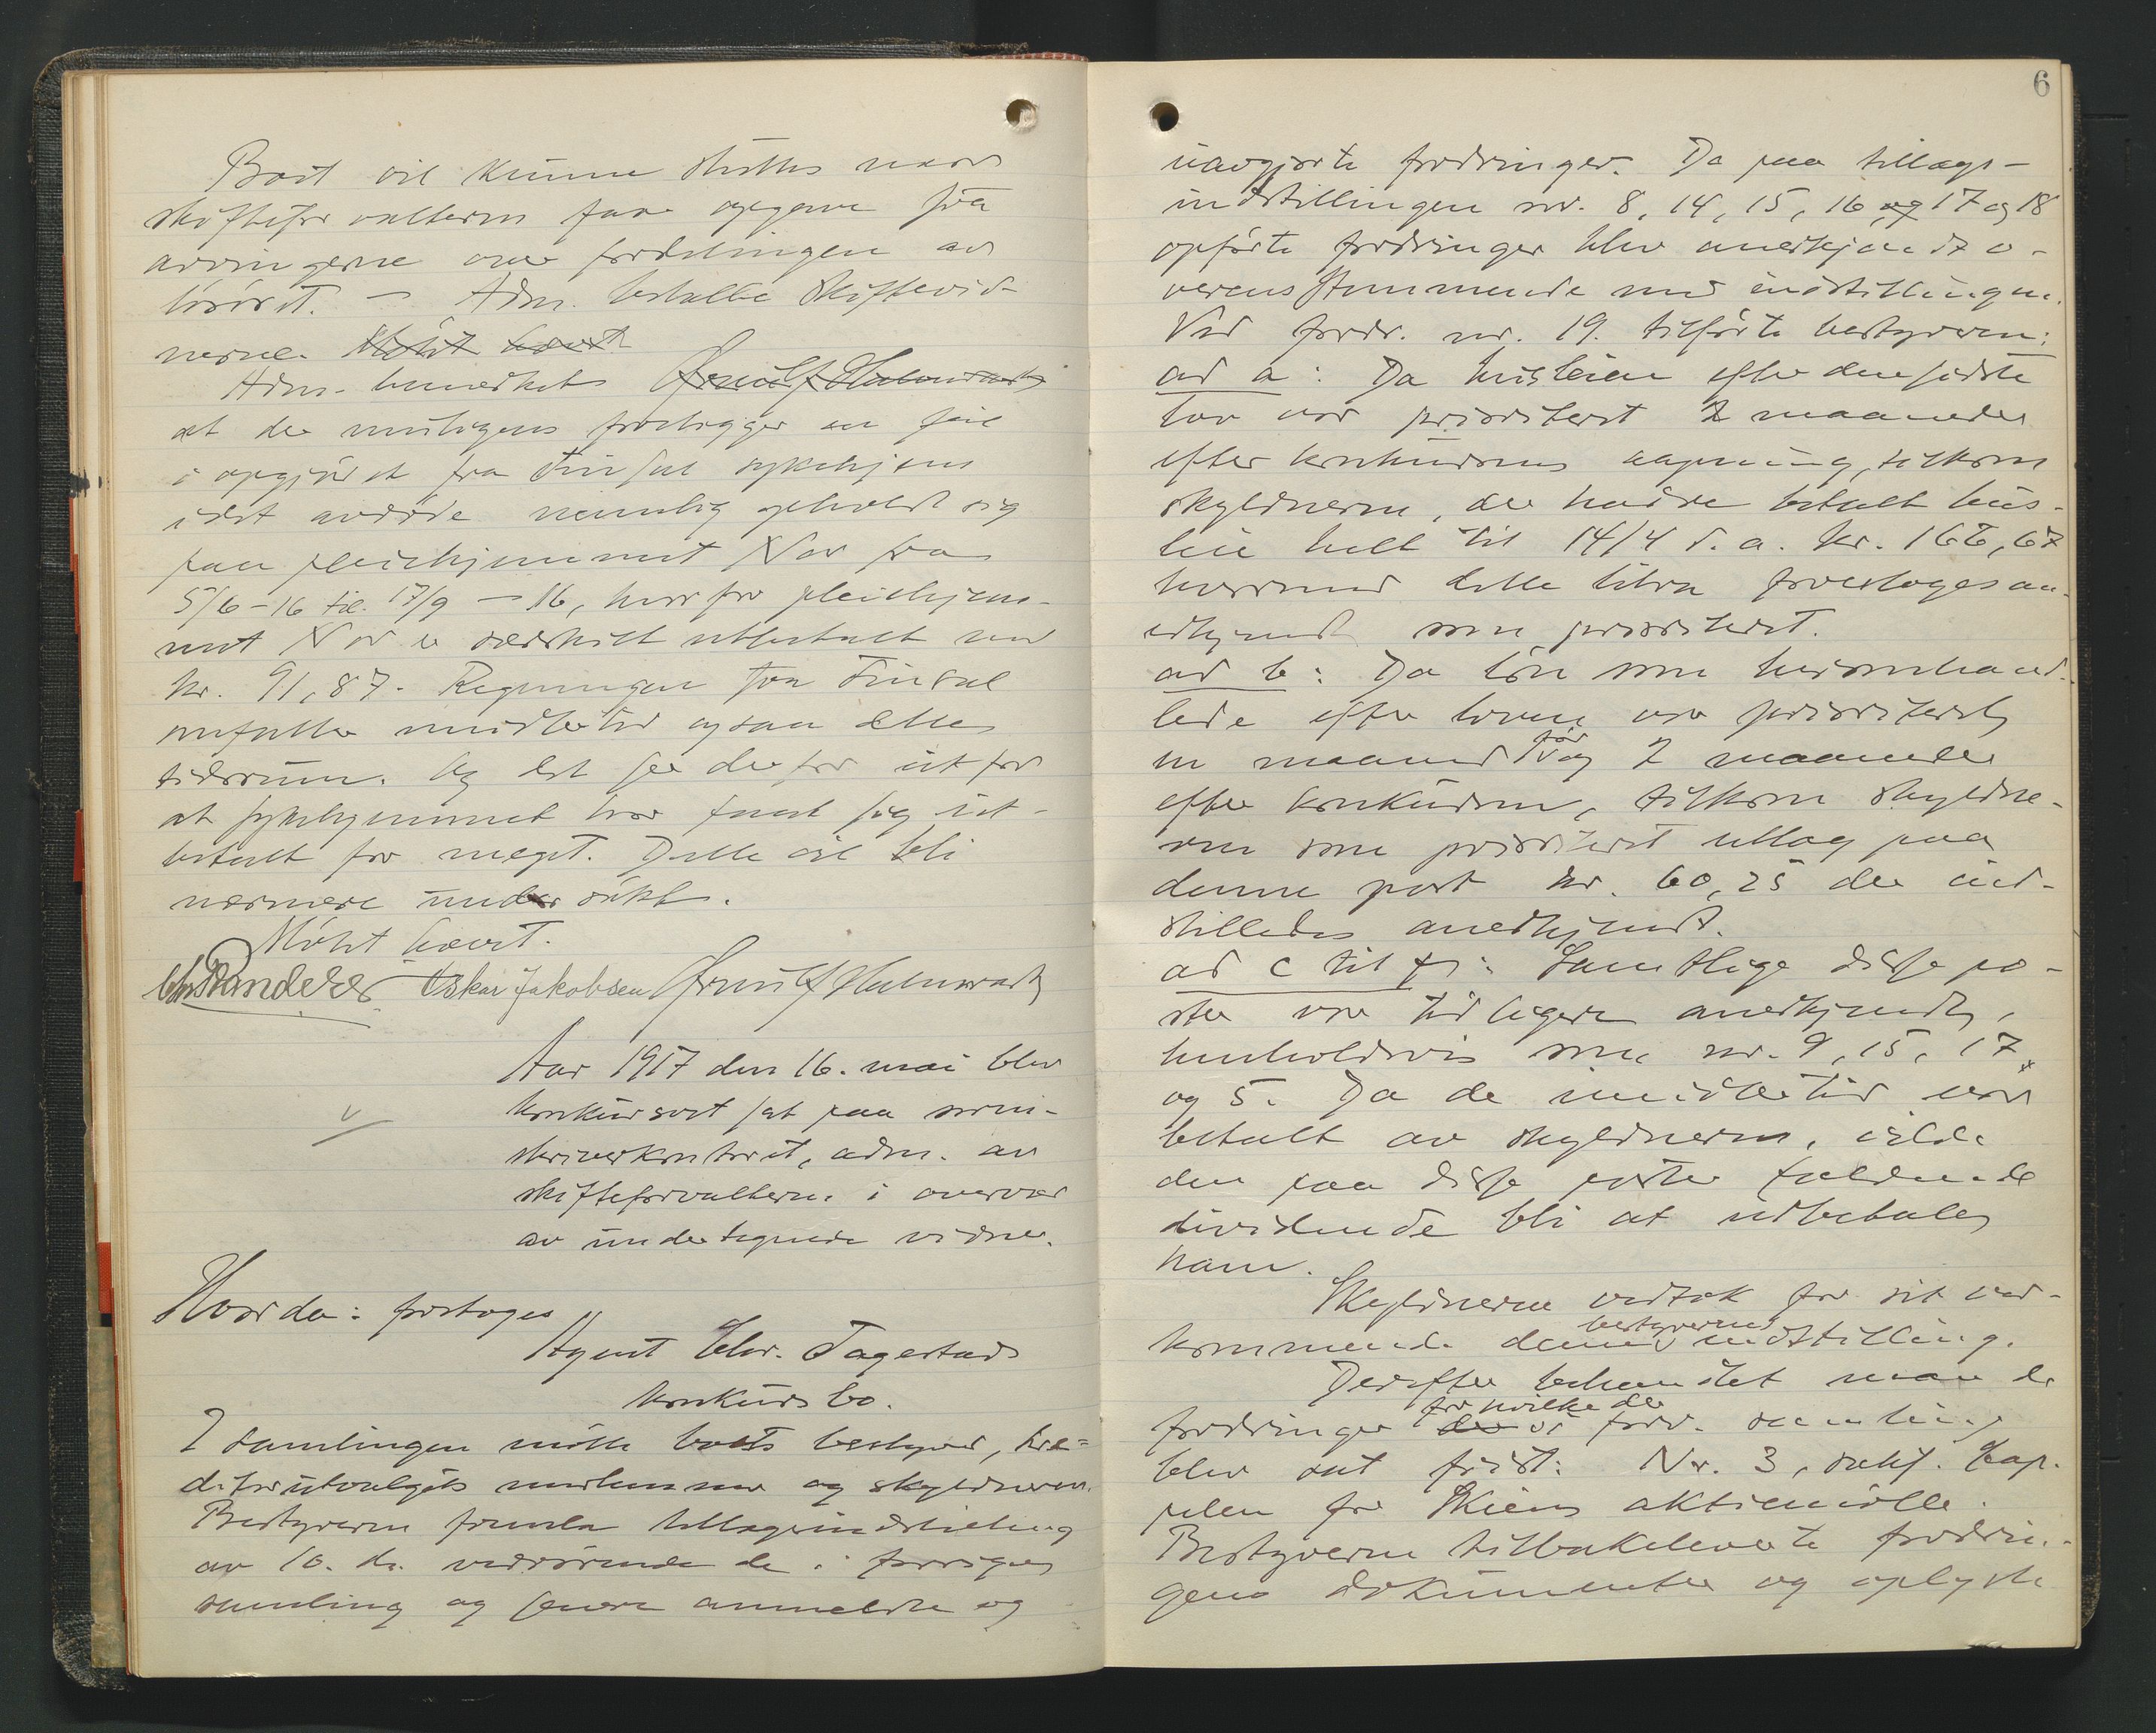 Boet vil kunne sluttes naar
skifteforvalteren faar opgave fra
arvingerne over fordelingen av
løsøret. — Adm. betalte skiftevid-
nerne. Møtet hævet
Adm. bemerket Arnulf
at der muligens foreligger en feil
i opgjøret fra Fin sal sykehjem
idet avdøde nemlig opholdt sig
paa pleiehjemmet Nor fra
5/6 - 16 til 17/9 - 16, hvorfor pleiehjem-
met Nor er særskilt utbetalt med
kr. 91,87. Regningen fra Finsal
omfatter imidlertid ogsaa dette
tidsrum. Og det ser derfor ut for
at sykehjemmet har faat sig ut-
betalt for meget. Dette vil bli
nærmere undersøkt.
Møtet hævet.
Oskar Jakobsen Arnulf
Aar 1917 den 16. mai blev
konkursret sat paa soren-
skriverkontoret, adm. av
skifteforvalteren i overvær
av undertegnede vidner.
Hvorda: foretoges
Agent Chr. Fagerstads
konkursbo.
I samlingen møtte boets bestyrer, kre-
ditorutvalgets medlemmer og skyldneren.
Bestyreren fremla tillægsindstilling
av 10. ds. vedrørende de i forrige
samling og senere anmeldte og
6
uavgjorte fordringer. De paa tillægs-
indstillingen nr. 8, 14, 15, 16 og 17 og 18
opførte fordringer blev anerkjendt o-
verensstemmende med indstillingen.
Ved fordr. nr. 19. tilførte bestyreren:
ad a: Da husleien efter den sidste
lov var prioritert 2 maaneder
efter konkursens aapning, tilkom
skyldneren, der hadde betalt hus-
leie helt til 14/4 d. a. kr. 166,67
hvormed dette blev foreslaaes an-
erkjendt som prioritert.
ad b: Da løn som heromhand-
lede efter loven var prioritert
en maaned før og 2 maaneder
efter konkursen, tilkom skyldne-
ren som prioritert utlæg paa
denne post kr. 60,25 der ind-
stilledes anerkjendt.
ad c til f: Samtlige disse po-
ster var tidligere anerkjendt,
henholdsvis som nr. 9, 15, 17
og 5. Da de imidlertid var
betalt av skyldneren, vilde
den paa disse poster faldende
dividende bli at utbetales
ham.
Skyldneren vedtok for sit ved-
kommende denne bestyrerens indstilling.
Derefter behandlet man de
fordringer der for hvilke der i forr. samling
blev sat frist: Nr. 3, saksf. Cap-
pelen for Skiens aktiemølle.
Bestyreren tilbakeleverte fordrin-
gens dokumenter og oplyste